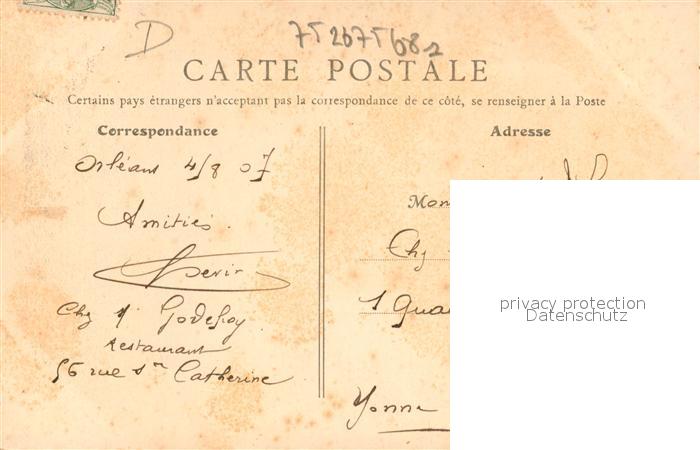 D
75 2675 682
CARTE POSTALE
Certains pays étrangers n'acceptent pas la correspondance de ce côté, se renseigner à la Poste
Correspondance
Adresse
Orléans 4/8 07
Amitiés
Chz M Godefroy
restaurant
56 rue Ste Catherine
Mon
Chz
1 Quai
Yonne
privacy protection
Datenschutz